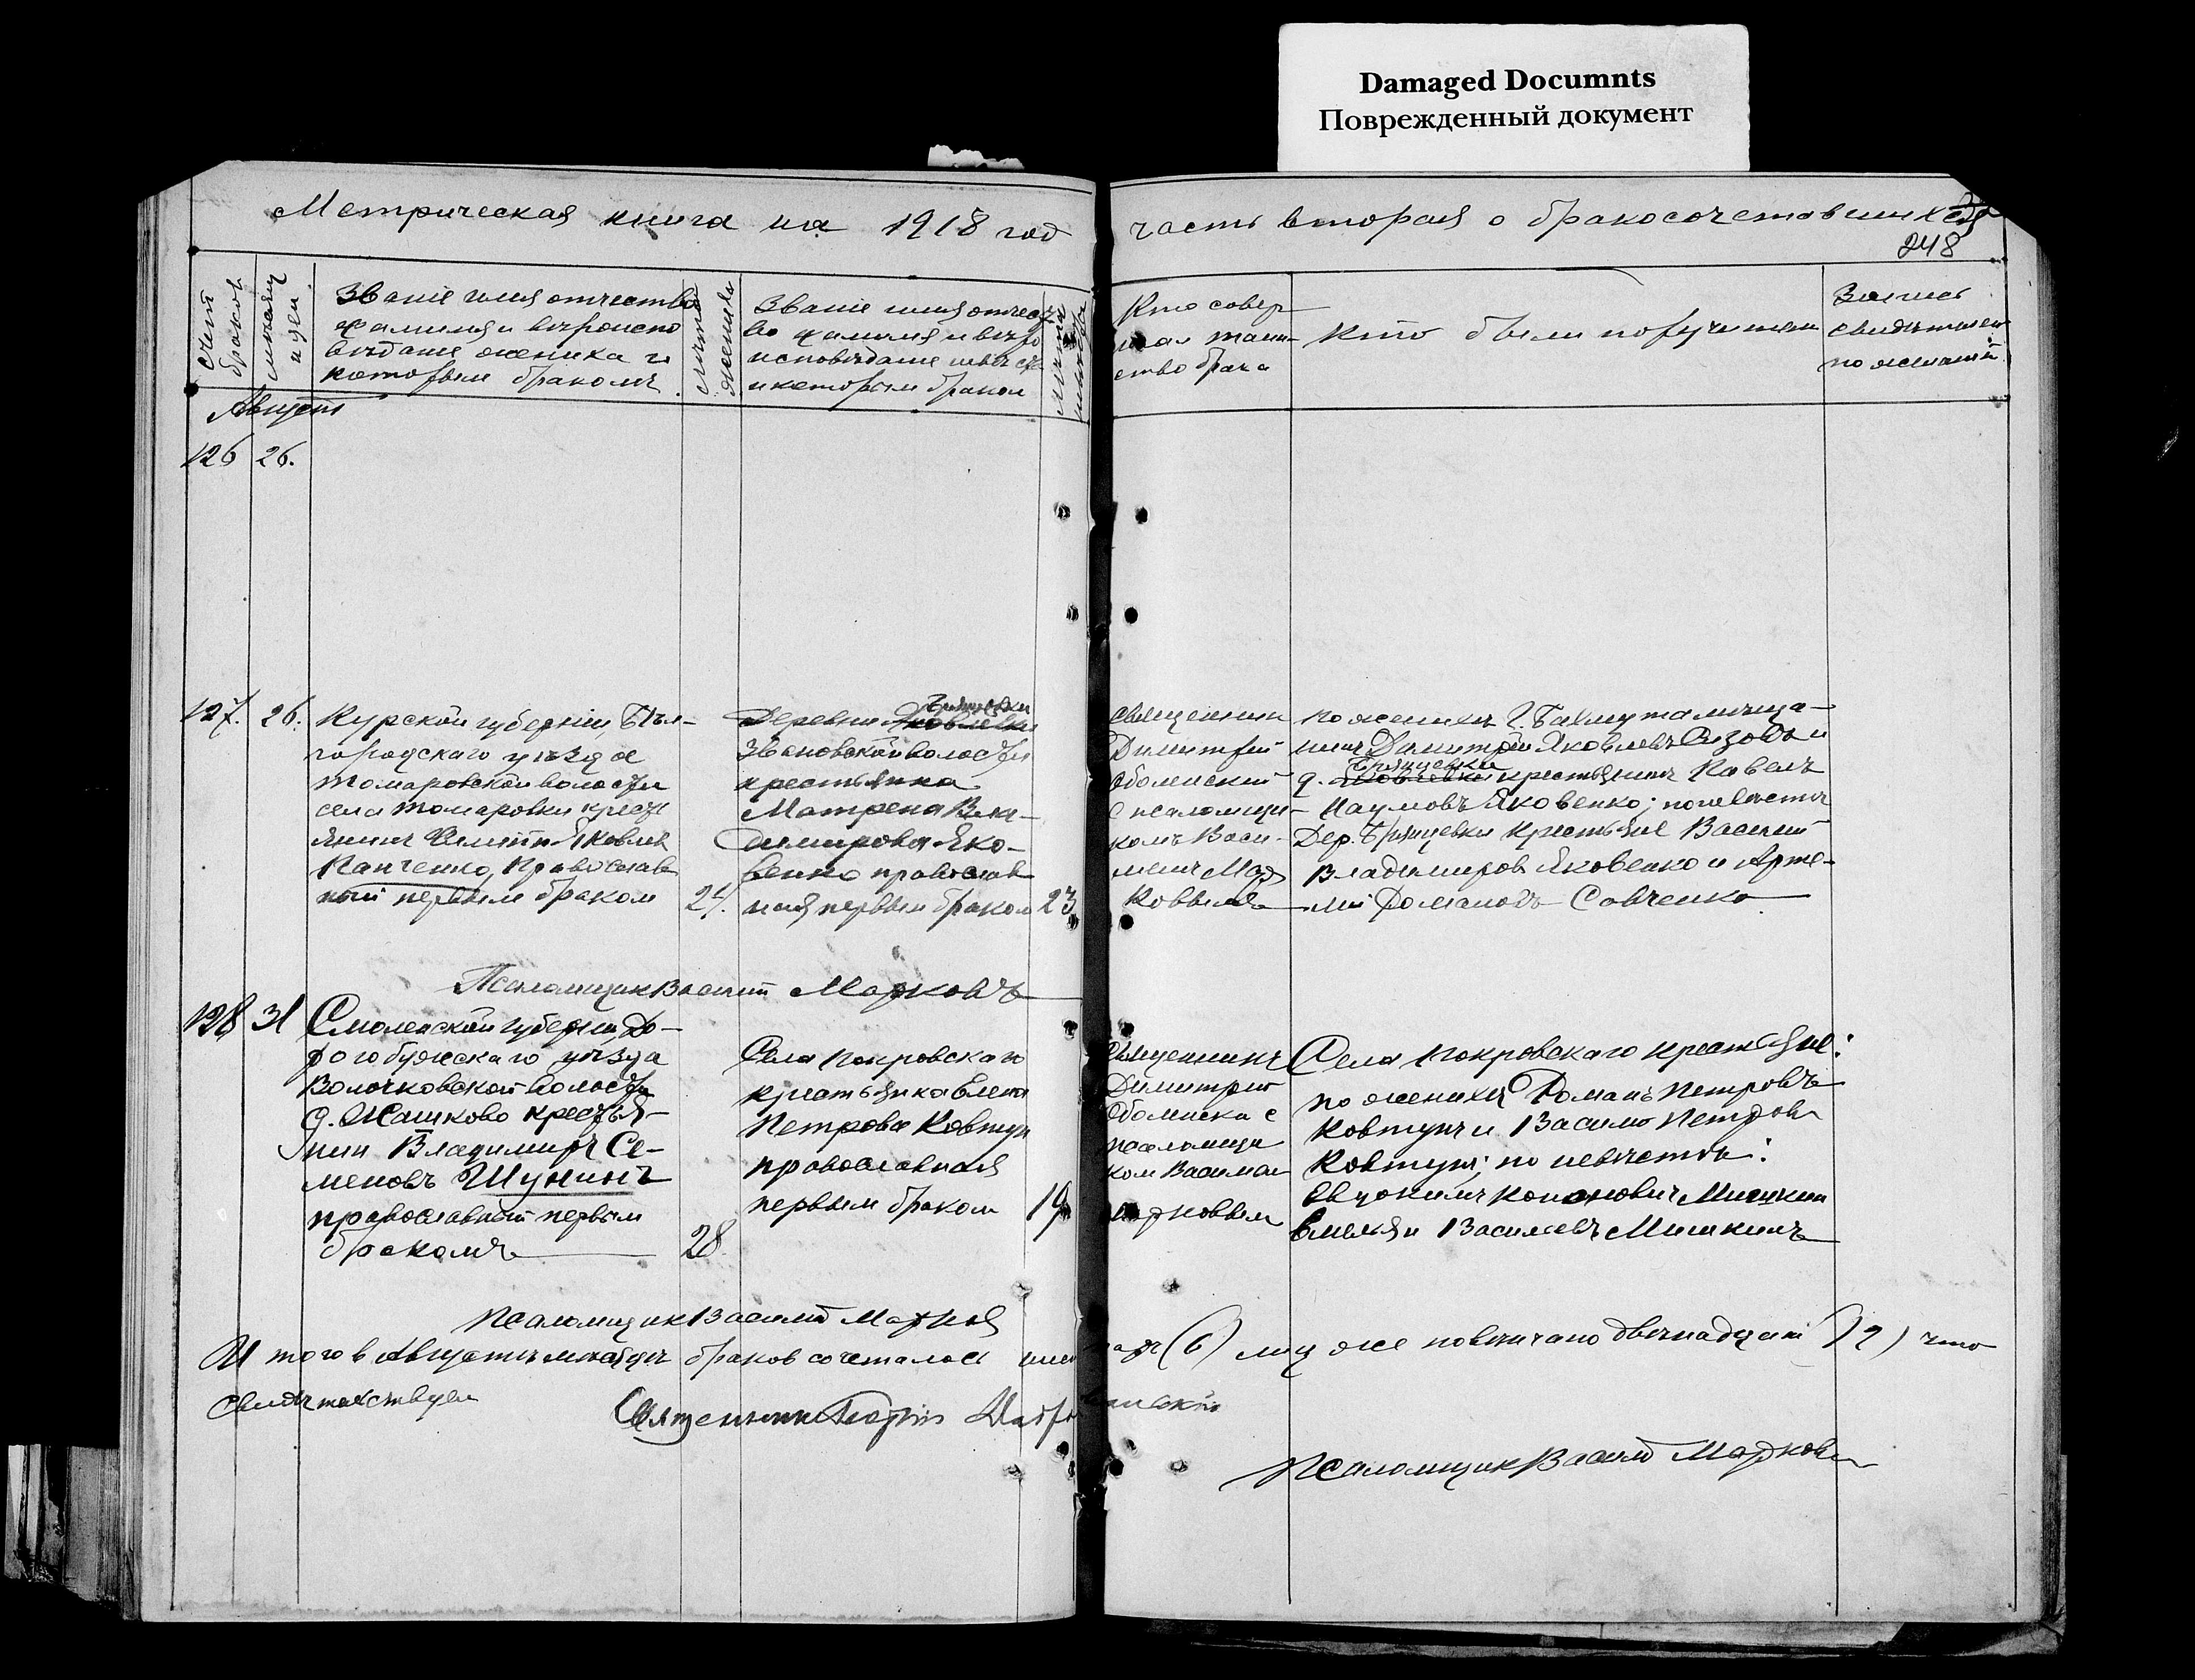 Damaged Documnts
Поврежденный документ
Метрическая книга на 1918 год
часть вторая о бракосочетавшихся
248
счет браков
месяц и день
Званіе имя отчество
фамилія и вѣроиспо
вѣданіе жениха и
которым бракомъ
Лѣта жениха
Званіе имя отчест
во фамилія и вѣро
исповѣданіе невѣсты
и которым браком
Лѣта невѣсты
Кто совер
шал таин-
ство брака
Кто были поручители
Запись
свидѣтелей
по желанію
Август
126 26.
127. 26.
Курской губерніи, Бѣл-
городскаго уѣзда
Томаровской волости
села Томаровки кресть
янинъ Яковлевъ
Панченко, Православ
ный первым браком
Деревни Яковлевки
Звановской волости
крестьянка
Матрена Вла-
димирова Яко-
венко православ
ная первым браком 23
священник
Димитрій
Оболенский
с псаломщи-
комъ Васи-
ліем Мар
ковымъ
по женихѣ Г. Бахмута мѣща-
нинъ Димитрій Яковлевъ Сизовъ и
д. Яковлевки крестьянинъ Павелъ
Наумовъ Яковенко; по невѣстѣ
Дер. крестьяне Василий
Владимиров Яковенко и Арте-
мій Романовъ Савченко
Псаломщик Василий Марковъ
128 31
Смоленской губерніи, До-
рогобужскаго уѣзда
Волочковской волости
д. Жашково крестья-
нин Владимиръ Се-
меновъ Шунинъ
православный первым
бракомъ 28
Села Покровскаго
крестьянка Елена
Петрова Ковтун
православная
первым браком 19
Священникъ
Димитрий
Оболенски с
псаломщи
ком Василием
Марковым
Села Покровскаго крестьяне:
по женихѣ Романъ Петровъ
Ковтунъ и Василий Петров
Ковтунъ; по невѣстѣ:
Евдокимъ Кононович Мишкин
Емельян Васильевъ Мишкинъ
Псаломщик Василий Марков
Итого в Августѣ мѣсяцѣ браков сочеталось (6) лиц же повѣнчано двѣнадцать (12) что
свидѣтельствуем
Священник
Псаломщик Василий Марков